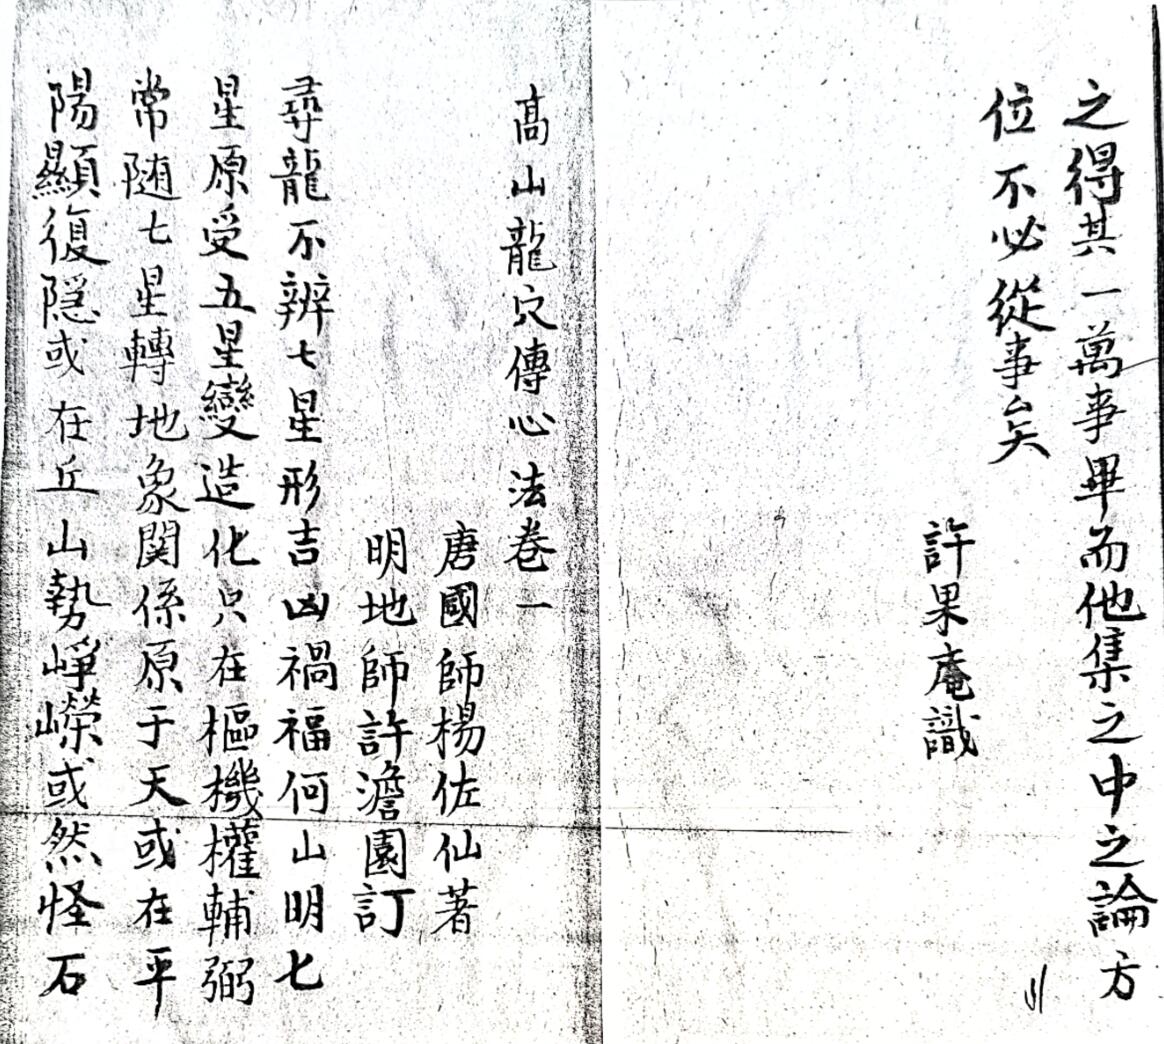 之得其一萬事畢而他集之中之論方
位不必從事矣
許果庵識
高山龍穴傳心法卷一
唐國師楊佐仙著
明地師許澹園訂
尋龍不辨七星形吉凶禍福何山明七
星原受五星變造化只在樞機權輔弼
常随七星轉地象関係原于天或在平
陽顯復隠或在丘山勢崢嶸或然怪石